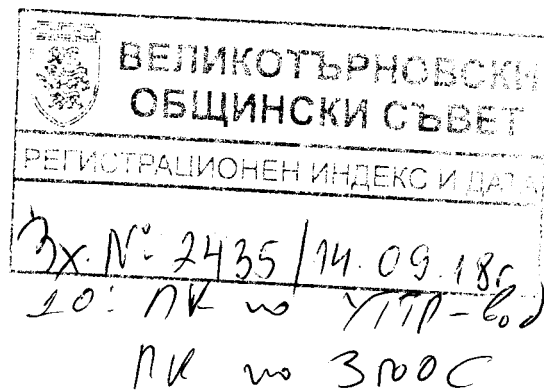 ВЕЛИКОТЪРНОВСКИ
ОБЩИНСКИ СЪВЕТ
РЕГИСТРАЦИОНЕН ИНДЕКС И ДАТА
Вх. № 2435/14.09.18г
ПК по
ПК по